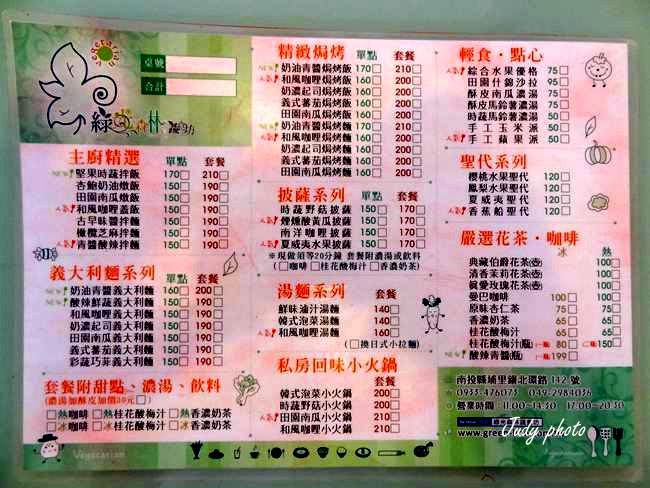 vegetarian
綠 森林 蔬坊
桌號
合計
主廚精選 單點 套餐
NEW 堅果時蔬拌飯 170 210
杏鮑奶油燉飯 150 190
田園南瓜燉飯 150 190
人氣! 和風咖哩蓋飯 150 190
古早味醬拌麵 150 190
橄欖芝麻拌麵 150 190
人氣! 青醬酸辣拌麵 150 190
義大利麵系列 單點 套餐
NEW 奶油青醬義大利麵 160 200
NEW 酸辣鮮蔬義大利麵 150 190
和風咖哩義大利麵 150 190
奶濃起司義大利麵 150 190
田園南瓜義大利麵 150 190
義式蕃茄義大利麵 150 190
彩蔬巧菲義大利麵 150 190
套餐附甜點、濃湯、飲料
(濃湯加酥皮加價30元)
熱咖啡 熱桂花酸梅汁 熱香濃奶茶
冰咖啡 冰桂花酸梅汁 冰香濃奶茶
Vegetarian
精緻焗烤 單點 套餐
NEW 奶油青醬焗烤飯 170 210
人氣! 和風咖哩焗烤飯 160 200
奶濃起司焗烤飯 160 200
義式蕃茄焗烤飯 160 200
田園南瓜焗烤飯 160 200
NEW 奶油青醬焗烤麵 170 210
人氣! 和風咖哩焗烤麵 160 200
奶濃起司焗烤麵 160 200
義式蕃茄焗烤麵 160 200
田園南瓜焗烤麵 160 200
披薩系列 單點 套餐
時蔬野菇披薩 150 170
人氣! 煙燻酸黃瓜披薩 150 170
南洋咖哩披薩 150 170
人氣! 夏威夷水果披薩 150 170
※現做須等20分鐘 套餐附濃湯或飲料
(咖啡 桂花酸梅汁 香濃奶茶)
湯麵系列 單點
鮮味滷汁湯麵 140
韓式泡菜湯麵 140
人氣! 和風咖哩湯麵 160
(換日式小拉麵)
私房回味小火鍋
韓式泡菜小火鍋 200
時蔬野菇小火鍋 200
人氣! 田園南瓜小火鍋 210
和風咖哩小火鍋 200
輕食・點心
人氣! 綜合水果優格 75
田園什錦沙拉 95
酥皮南瓜濃湯 75
酥皮馬鈴薯濃湯 75
時蔬馬鈴薯濃湯 50
手工玉米派 50
人氣! 手工蘋果派 50
聖代系列
櫻桃水果聖代 120
鳳梨水果聖代 120
夏威夷聖代 120
人氣! 香蕉船聖代 120
嚴選花茶・咖啡
冰 熱
典藏伯爵花茶(壺) 100
清香茉莉花茶(壺) 100
真愛玫瑰花茶(壺) 100
曼巴咖啡 100 100
原味杏仁茶 65 65
香濃奶茶 65 65
桂花酸梅汁(瓶) 一瓶 80 二瓶 150
酸辣青醬(瓶) 一瓶 199
南投縣埔里鎮北環路142號
0933-476073 049-2984036
營業時間：11:00~14:30 17:00~20:30
Judy photo
Vegetarian